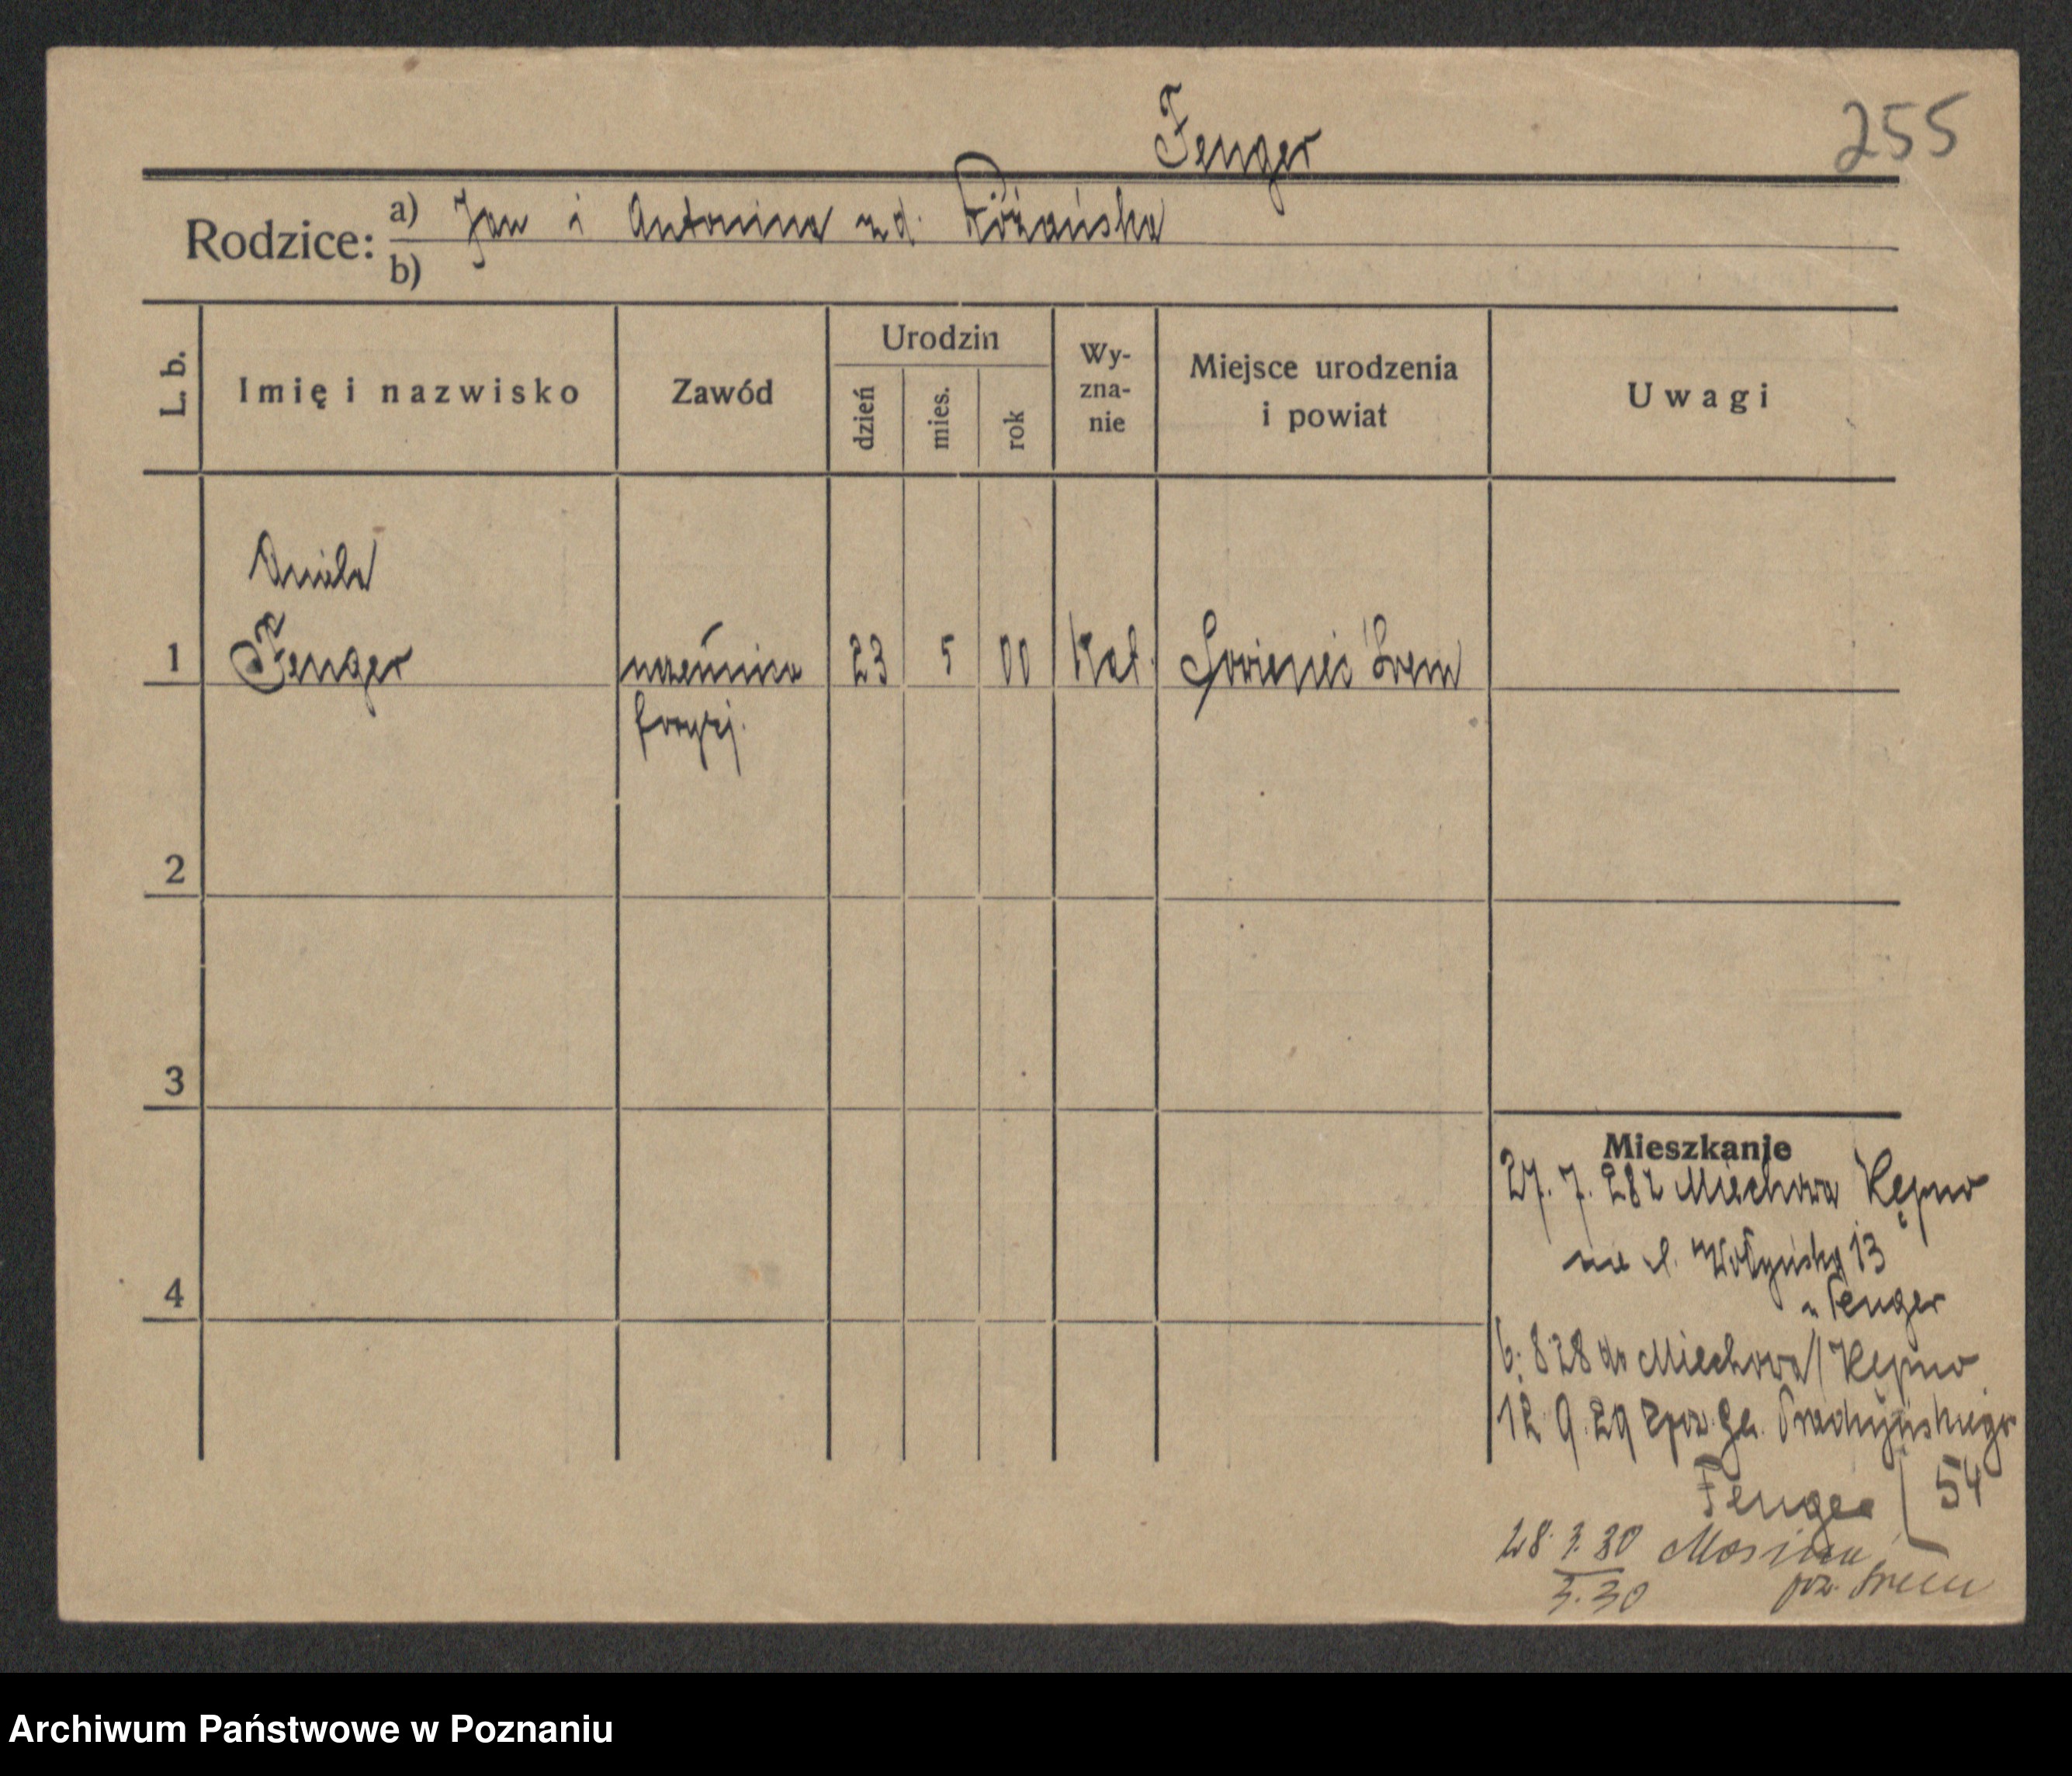 Fenger
255
Rodzice: a) Jan i Antonina zd. Różańska
b)
L. b.
Imię i nazwisko
Zawód
Urodzin
dzień
mies.
rok
Wy-
zna-
nie
Miejsce urodzenia
i powiat
Uwagi
Aniela
1 Fenger uczennica 23 5 00 Kat. Sowiniec Śrem
fryzj.
2
3
4
Mieszkanie
27. 7. 28 z Miechowa Kępno
Wołyńska 13
u Fenger
6. 8 28 do Miechowa/Kępno
12 9. 29 Prądzyńskiego
Fenger 54
28. 3. 30 Mosina
3. 30 pow. Śrem
Archiwum Państwowe w Poznaniu